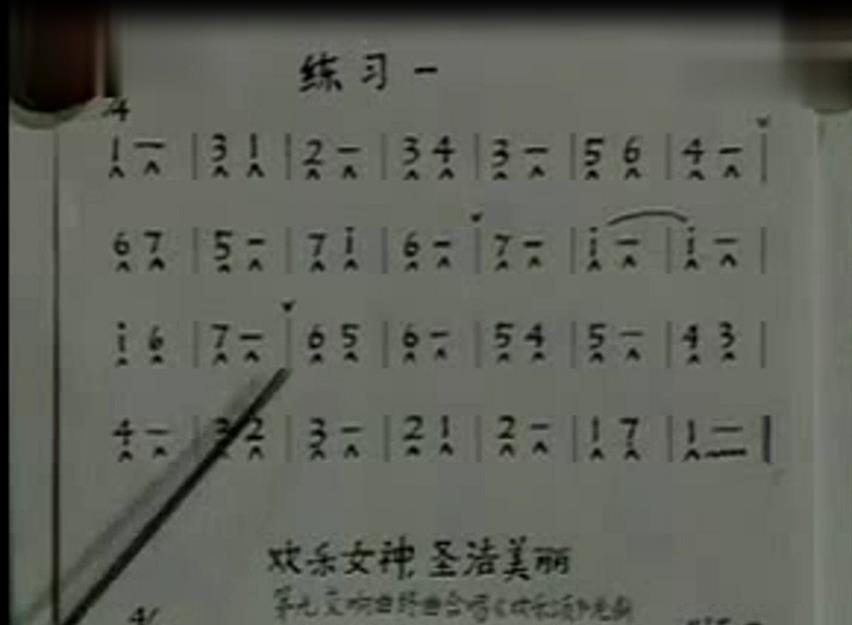 练习一
1 – | 3 1 | 2 – | 3 4 | 3 – | 5 6 | 4 – |
6 7 | 5 – | 7 i | 6 – | 7 – | i – | i – |
i 6 | 7 – | 6 5 | 6 – | 5 4 | 5 – | 4 3 |
4 – | 3 2 | 3 – | 2 1 | 2 – | 1 7 | 1 – |
欢乐女神,圣洁美丽
第九交响曲终曲合唱《欢乐颂》